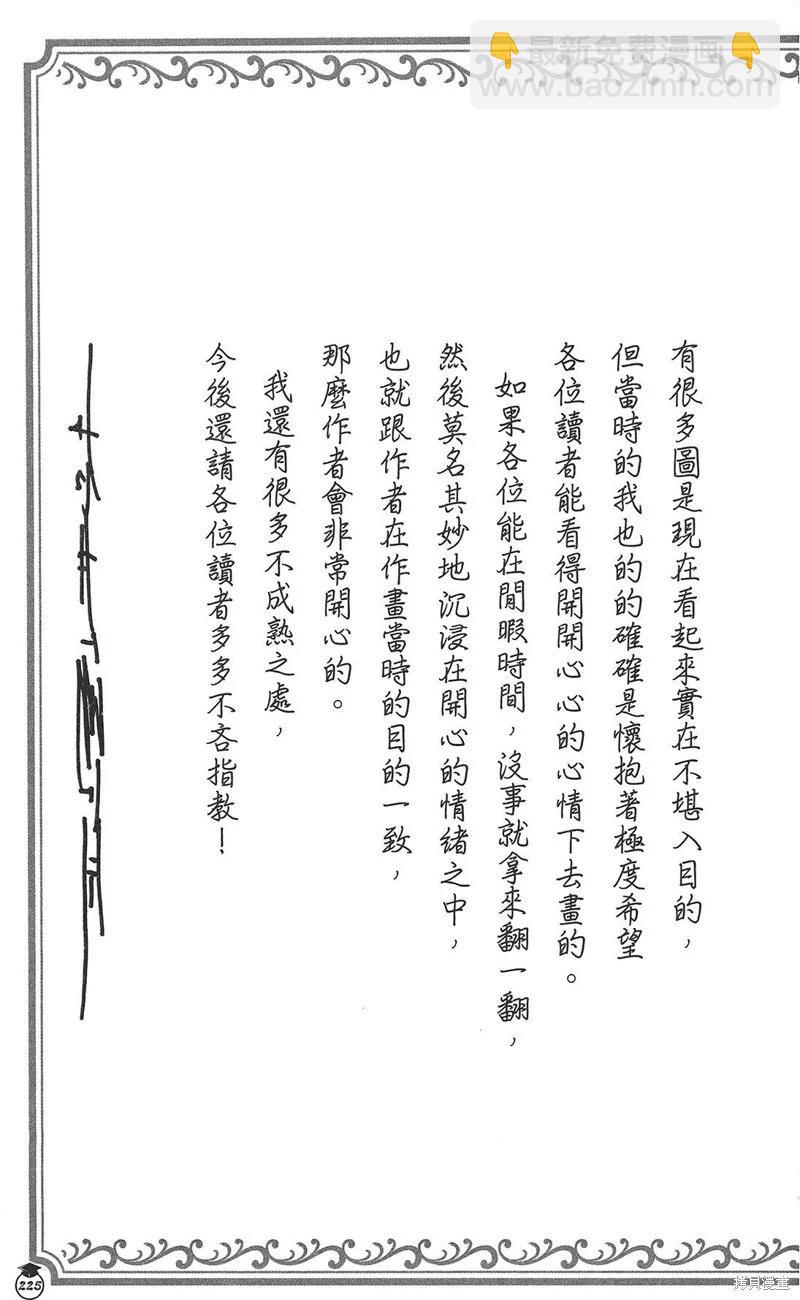 最新免费漫画
www.baozimh.com
有很多圖是現在看起來實在不堪入目的，
但當時的我也的的確確是懷抱著極度希望
各位讀者能看得開開心心的心情下去畫的。
如果各位能在閒暇時間，沒事就拿來翻一翻，
然後莫名其妙地沉浸在開心的情緒之中，
也就跟作者在作畫當時的目的一致，
那麼作者會非常開心的。
我還有很多不成熟之處，
今後還請各位讀者多多不吝指教！
225
拷貝漫畫